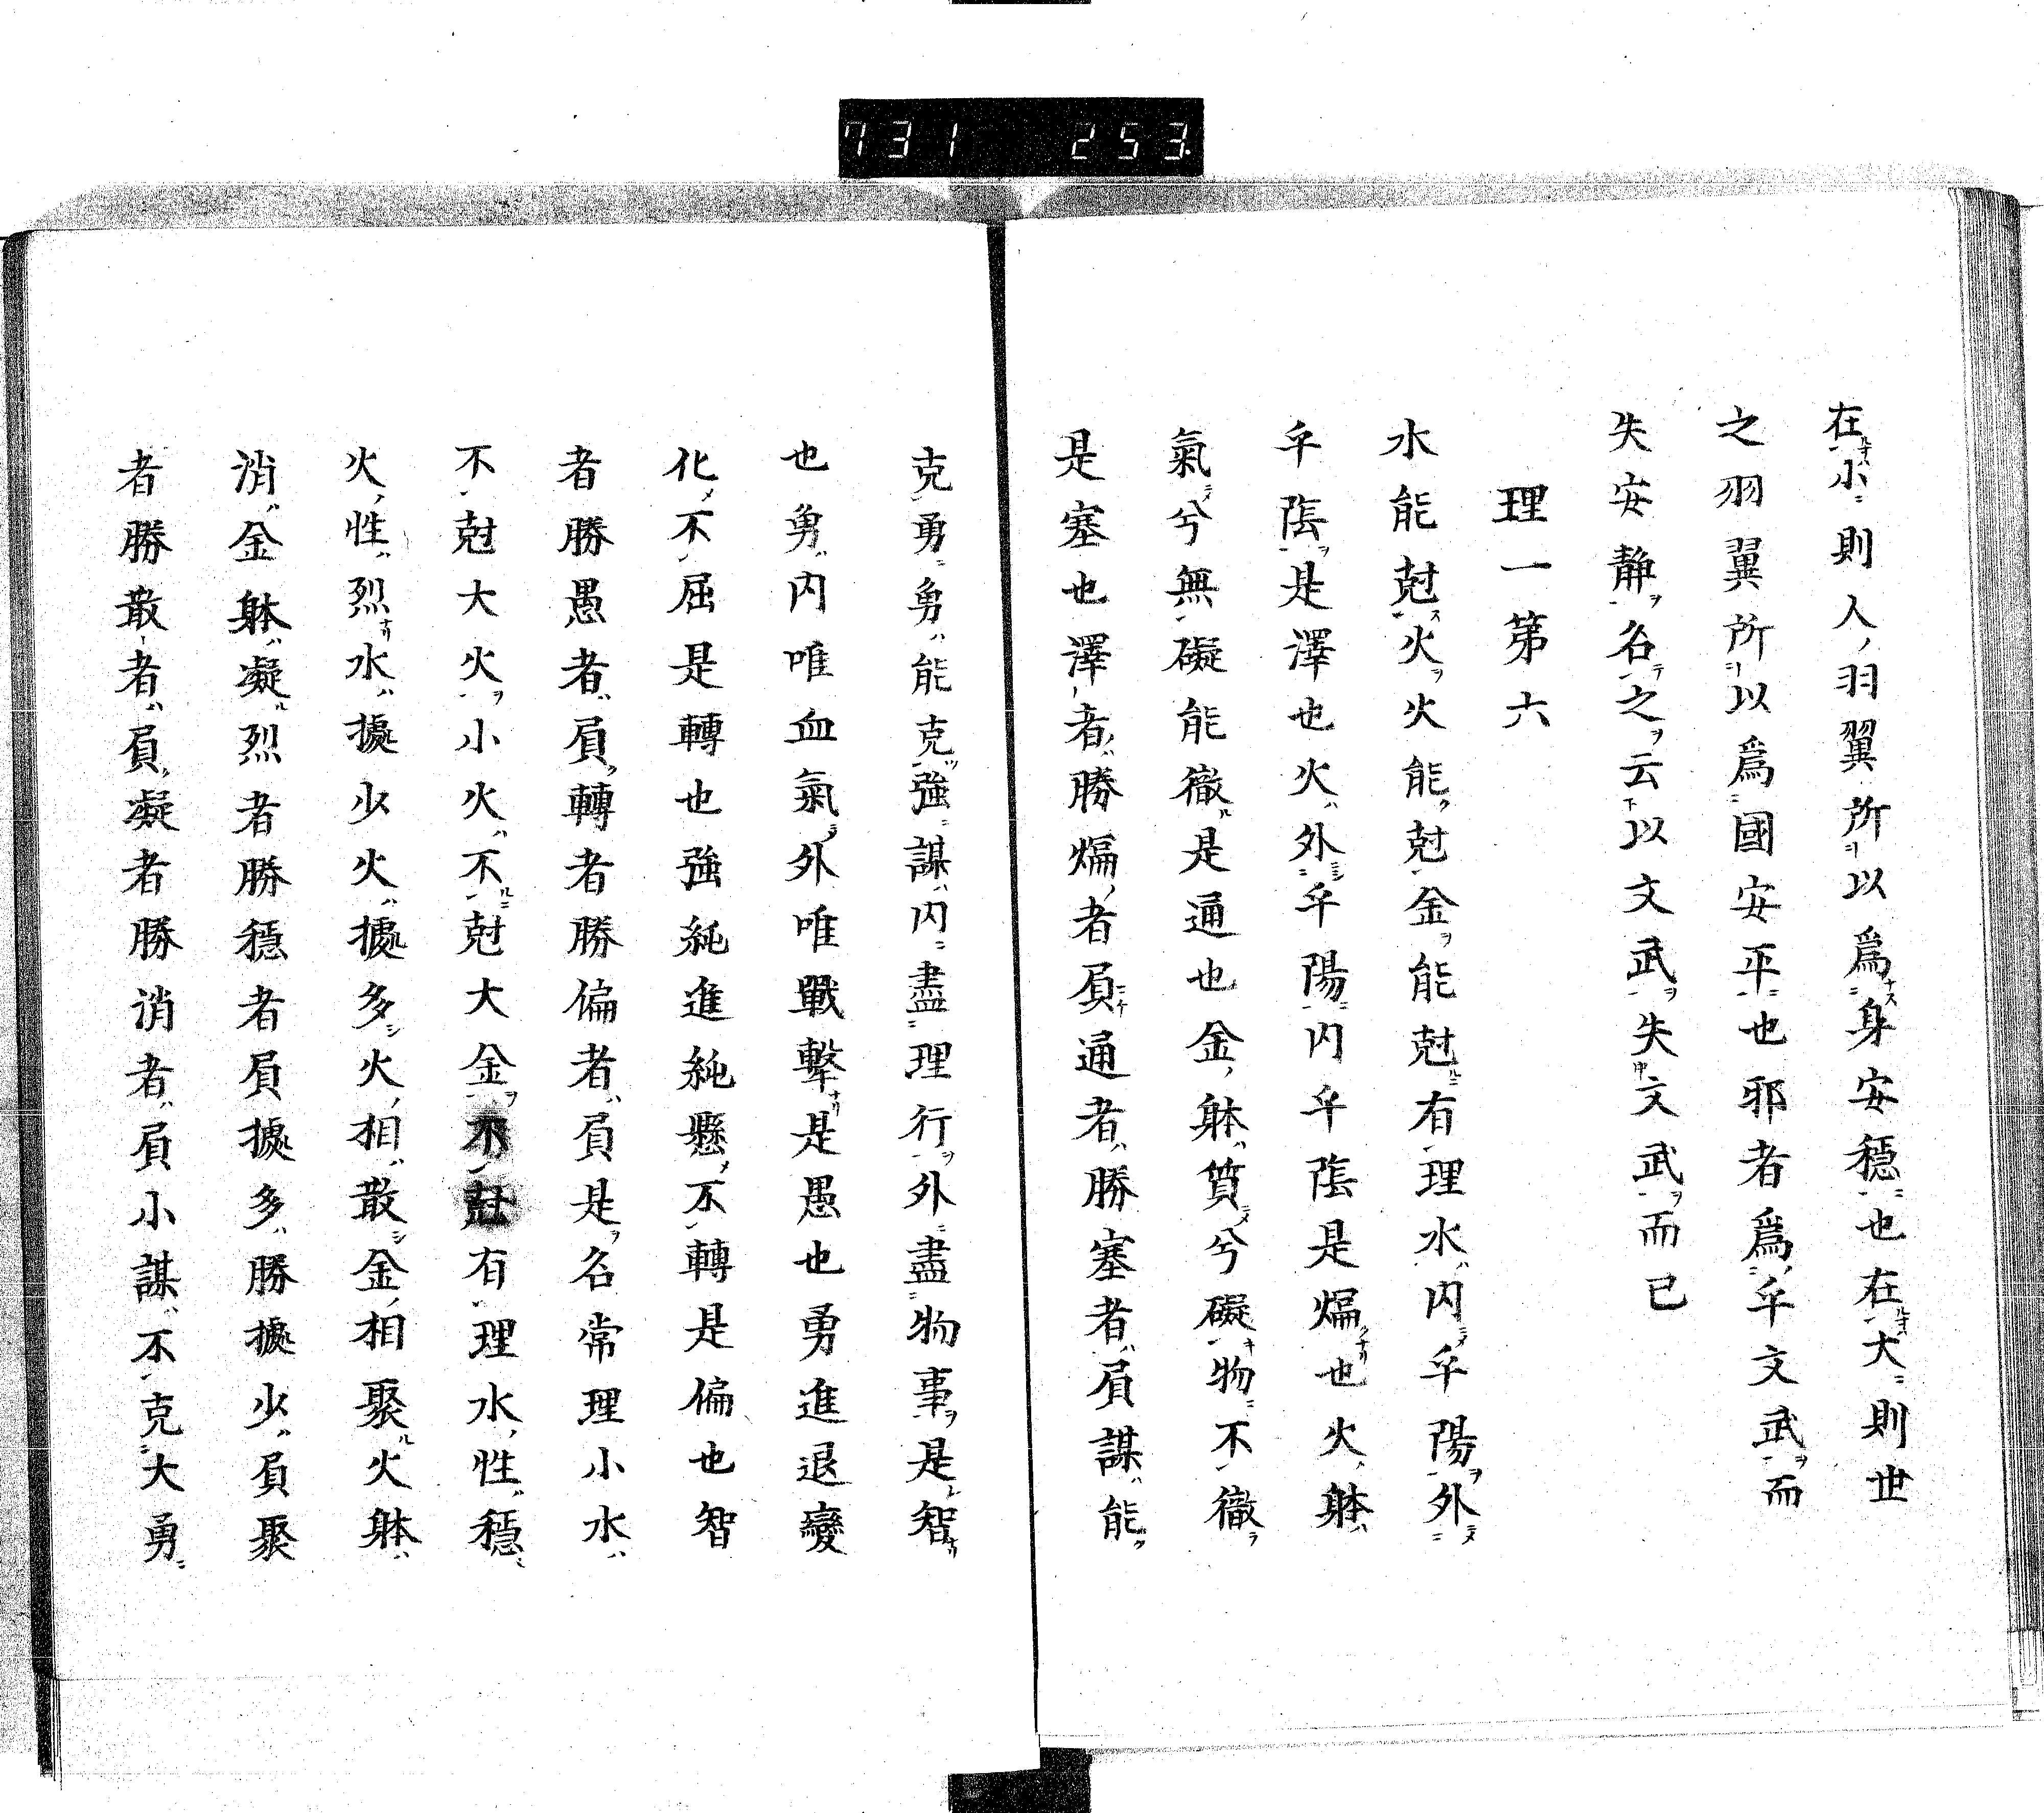 731 253
在小則人羽翼所以爲身安穩也在大則世
之羽翼所以爲國安平也邪者爲乎文武而
失安靜名之云以文武失文武而已
理一第六
水能尅火火能尅金能尅有理水内乎陽外
乎陰是澤也火外乎陽内乎陰是煏也火躰
氣兮無礙能徹是通也金躰質兮礙物不徹
是塞也澤者勝煏者屓通者勝塞者屓謀能
克勇勇能克強謀内盡理行外盡物事是智
也勇内唯血氣外唯戰擊是愚也勇進退變
化不屈是轉也強純進純懸不轉是偏也智
者勝愚者屓轉者勝偏者屓是名常理小水
不尅大火小火不尅大金不尅有理水性穩
火性烈水攄少火攄多火相散金相聚火躰
消金躰凝烈者勝穩者屓攄多勝攄少屓聚
者勝散者屓凝者勝消者屓小謀不克大勇